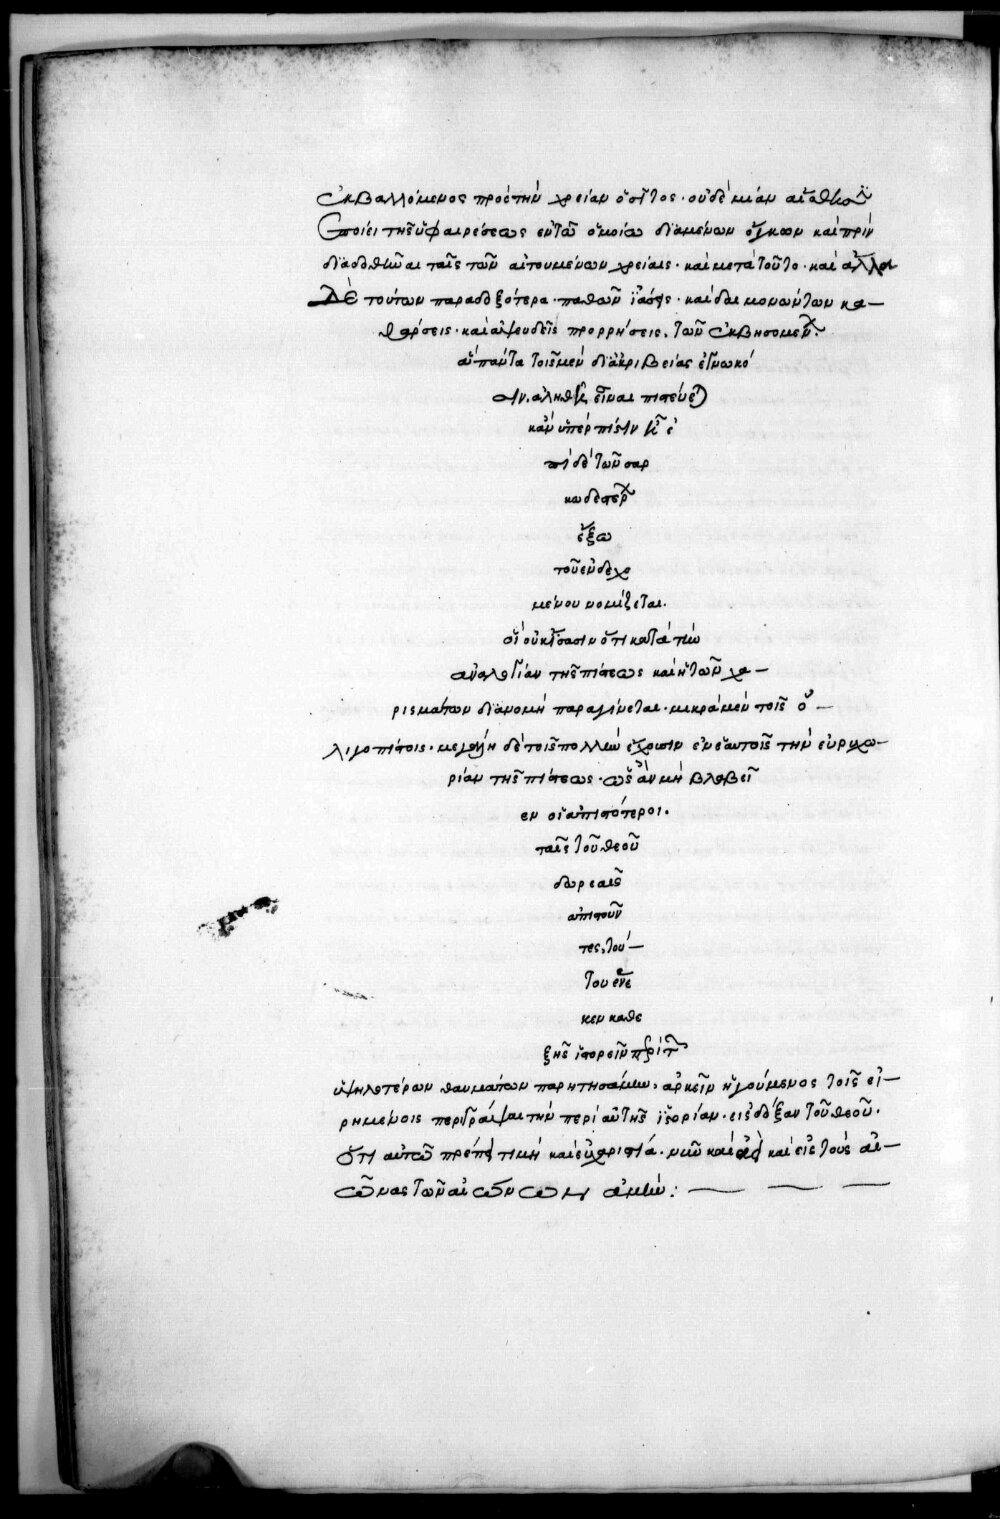 ἐκβαλλόμενος πρὸς τὴν χρείαν ὁ σῖτος· οὐδεμίαν αἴσθησιν
ἐποίει τῆς ὑφαιρέσεως ἐν τῶ ὁμοίω διαμένων ὄγκων καὶ πρὶν
διαδοθῆναι ταῖς τῶν αἰτουμένων χρείαις· καὶ μετὰ τοῦτο· καὶ ἄλλα
δὲ τούτων παραδοξότερα· παθῶν ἰάσεις· καὶ δαιμονώντων κα–
θάρσεις· καὶ ἀψευδεῖς προρρήσεις, τῶν ἐκβησομένων·
ἃ πάντα τοῖς μὲν δι' ἀκριβείας ἐγνωκό
σιν. ἀληθῆ εἶναι πιστεύεται
κἂν ὑπὲρ πίστιν ἦ ἐ
πὶ δὲ τῶν σαρ
κωδεστέρων
ἔξω
τοῦ ἐνδεχο
μένου νομίζεται.
οἳ οὐκ ἴσασιν ὅτι κατὰ τὴν
ἀναλογίαν τῆς πίστεως καὶ ἡ τῶν χα–
ρισμάτων διανομὴ παραγίνεται· μικρὰ μὲν τοῖς ὀ–
λιγοπίστοις· μεγάλη δὲ τοῖς πολλὴν ἔχουσιν ἐν ἑαυτοῖς τὴν εὐρυχω–
ρίαν τῆς πίστεως· ὡς ἂν μὴ βλαβεῖ
εν οἱ ἀπιστότεροι.
ταῖς τοῦ θεοῦ
δωρεαῖς
ἀπιστοῦν
τες, τού–
του ἕνε
κεν καθε
ξῆς ἱστορεῖν περὶ τῶν
ὑψηλοτέρων θαυμάτων παρητησάμην, ἀρκεῖν ἡγούμενος τοῖς εἰ–
ρημένοις περιγράψαι τὴν περὶ αὐτῆς ἱστορίαν· εἰς δόξαν τοῦ θεοῦ·
ὅτι αὐτῶ πρέπει τιμὴ καὶ εὐχαριστία· νῦν καὶ ἀεὶ καὶ εἰς τοὺς αἰ–
ῶνας τῶν αἰώνων ἀμήν: — — —